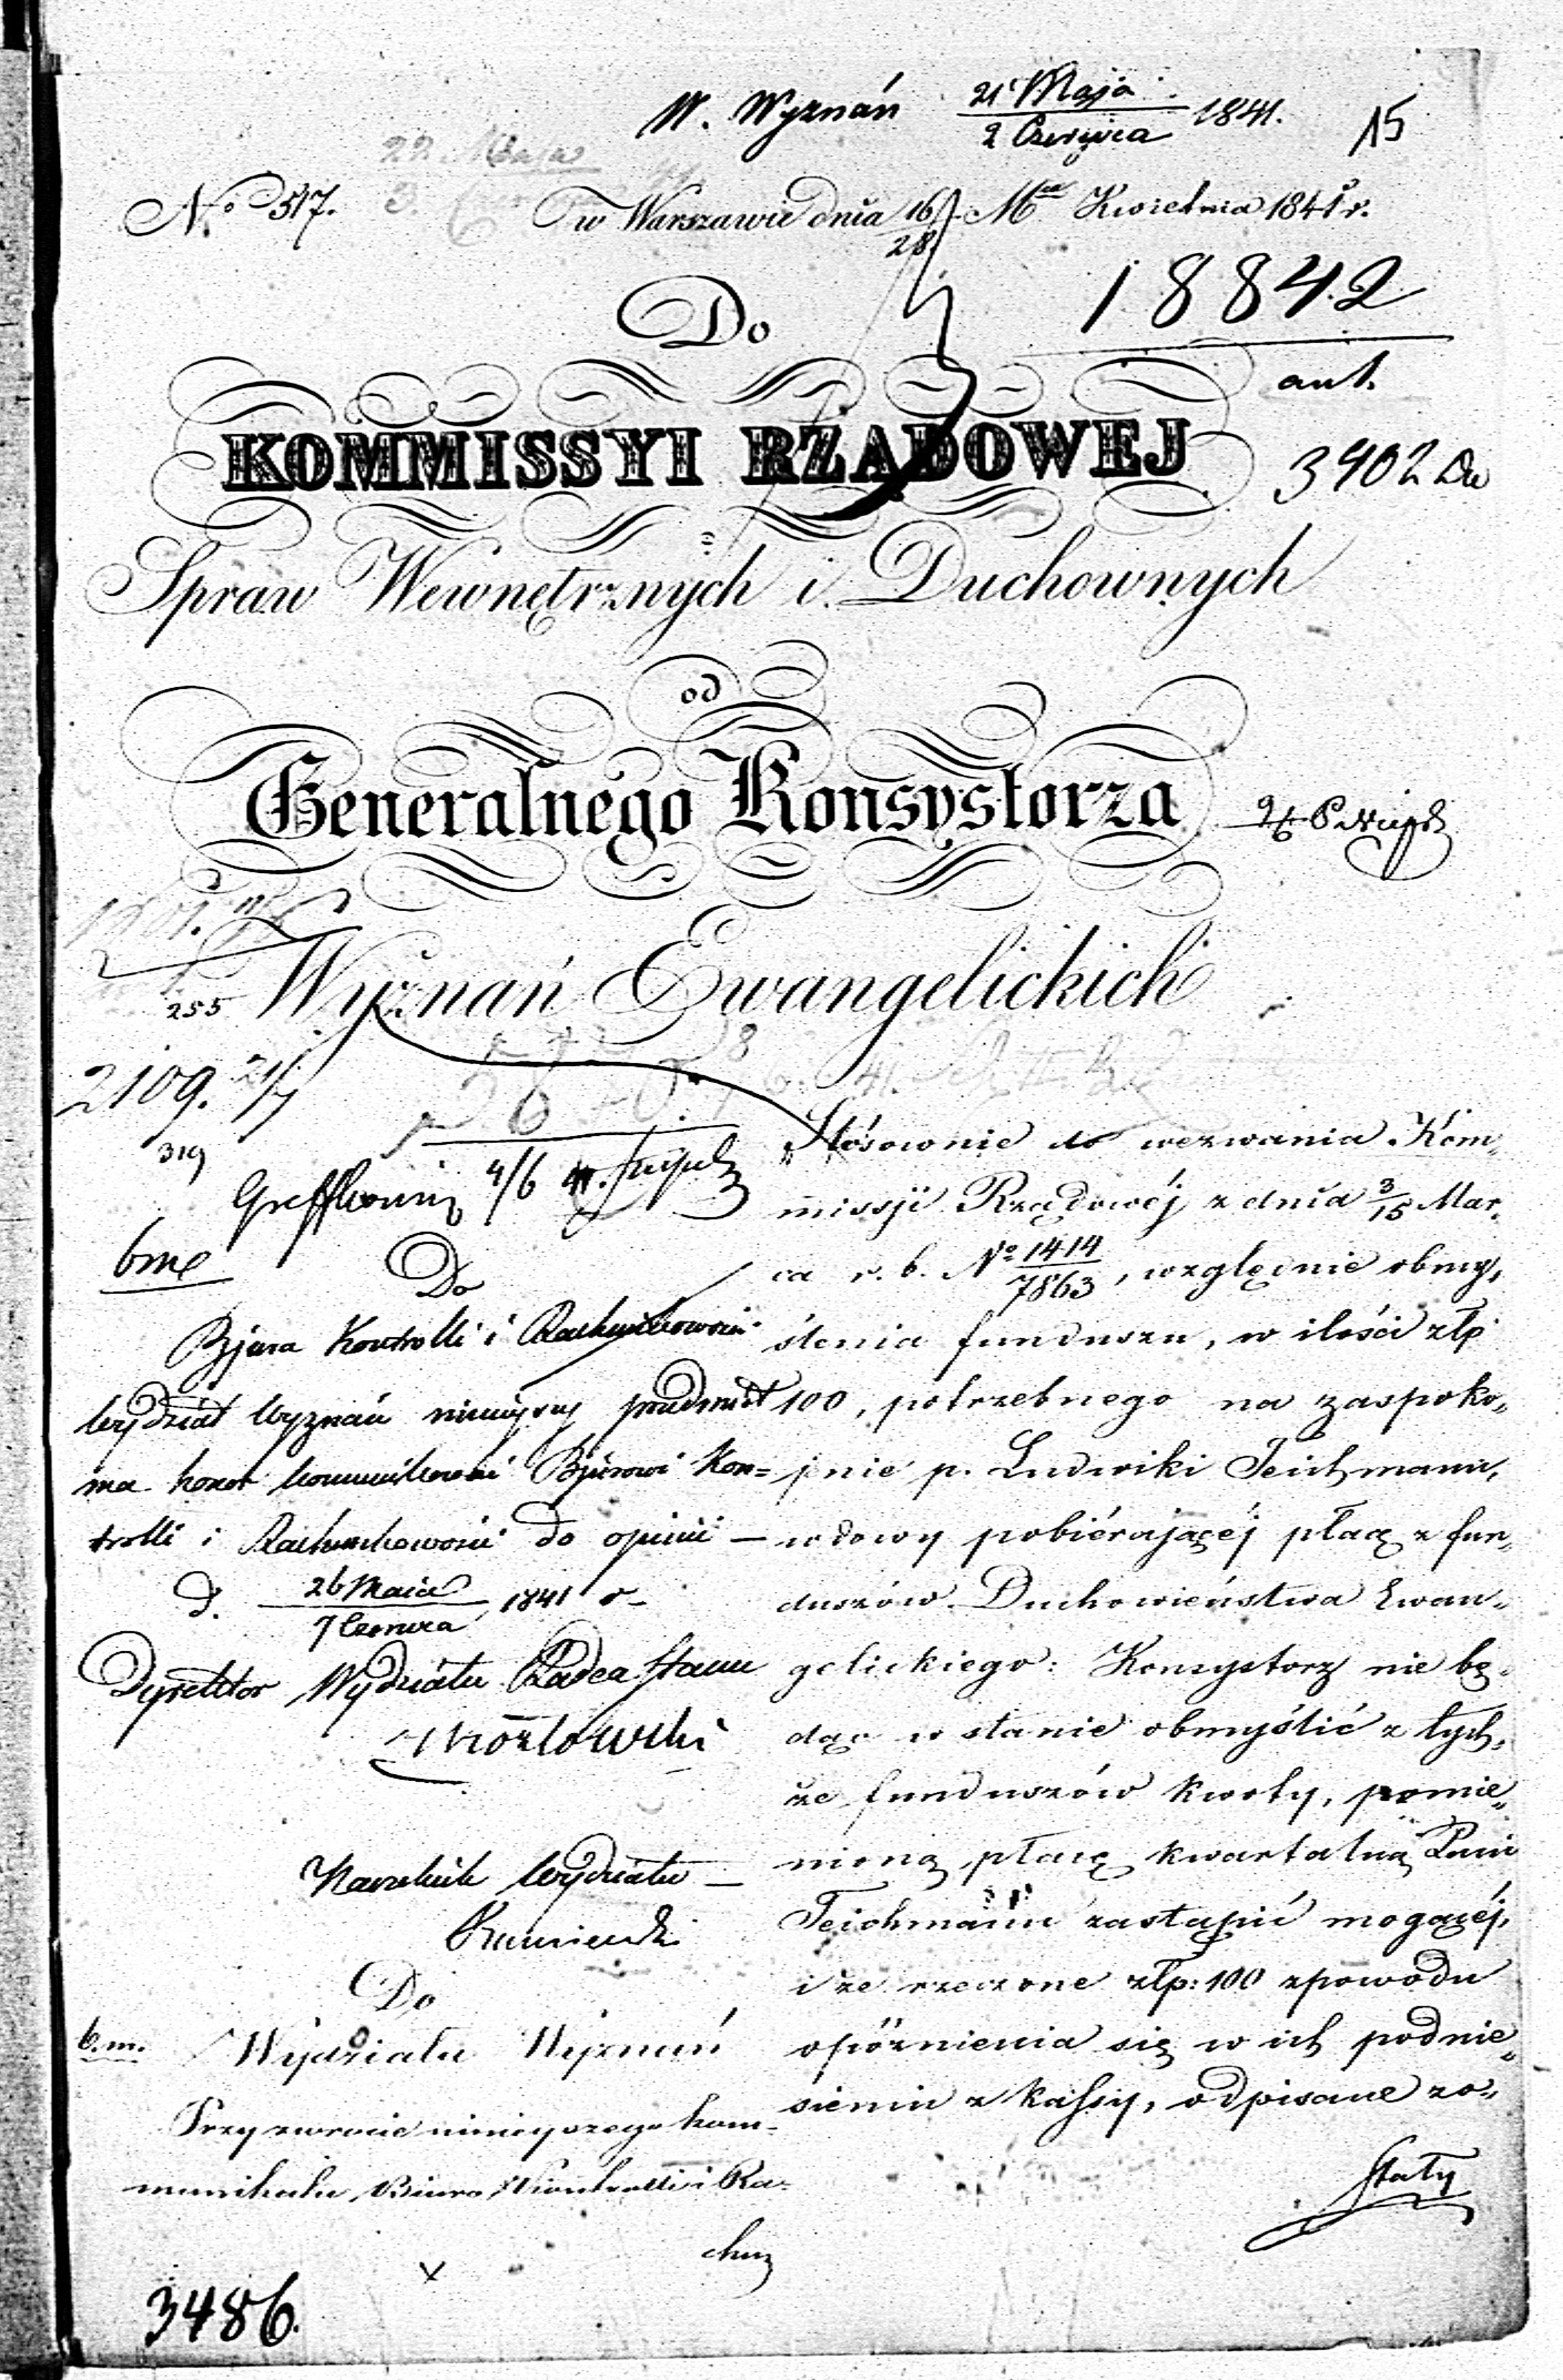 W. Wyznań 21 Maja / 2 Czerwca 1841. 15
22 Maja
3.
No 517. w Warszawie dnia 16/28 Mca Kwietnia 1841 r.
18842
Do
ant.
KOMMISSYI RZĄDOWEJ
3402
Spraw Wewnętrznych i Duchownych
od
Generalnego Konsystorza
Wyznań Ewangelickich
255
2109. 21/7
319
4/6 41.
bme
Do
Bjura Kontrolli i Rachunkowości
Wydział Wyznań niniejszy przedmiot
ma honor kommunikować Bjurowi Kon=
trolli i Rachunkowości do opinii —
d. 26 Maia / 7 Czerwca 1841 r
Dyrektor Wydziału Radca Stanu
Kozłowski
Naczelnik Wydziału —
Do
b.m. Wydziału Wyznań
Przy zwrocie niniejszego kom=
munikatu Biuro Kontrolli i Ra=
chun
Stósownie do wezwania Kom„
missyi Rządowéj z dnia 3/15 Mar„
ca r. b. No 1414/7863, względnie obmy„
ślenia funduszu, w ilości złp
100, potrzebnego na zaspoko„
jenie p. Ludwiki Teichmann,
wdowy pobiérającéj płacę z fun„
duszów Duchowieństwa Ewan„
gelickiego: Konsystorz nie bę„
dąc w stanie obmyślić z tych„
że funduszów kwoty, pomie„
nioną płacę kwartalną Pani
Teichmann zastąpić mogącéj,
i że rzeczone złp: 100 z powodu
opóźnienia się w ich podnie„
sieniu z kassy, odpisane zo„
stały
3486.